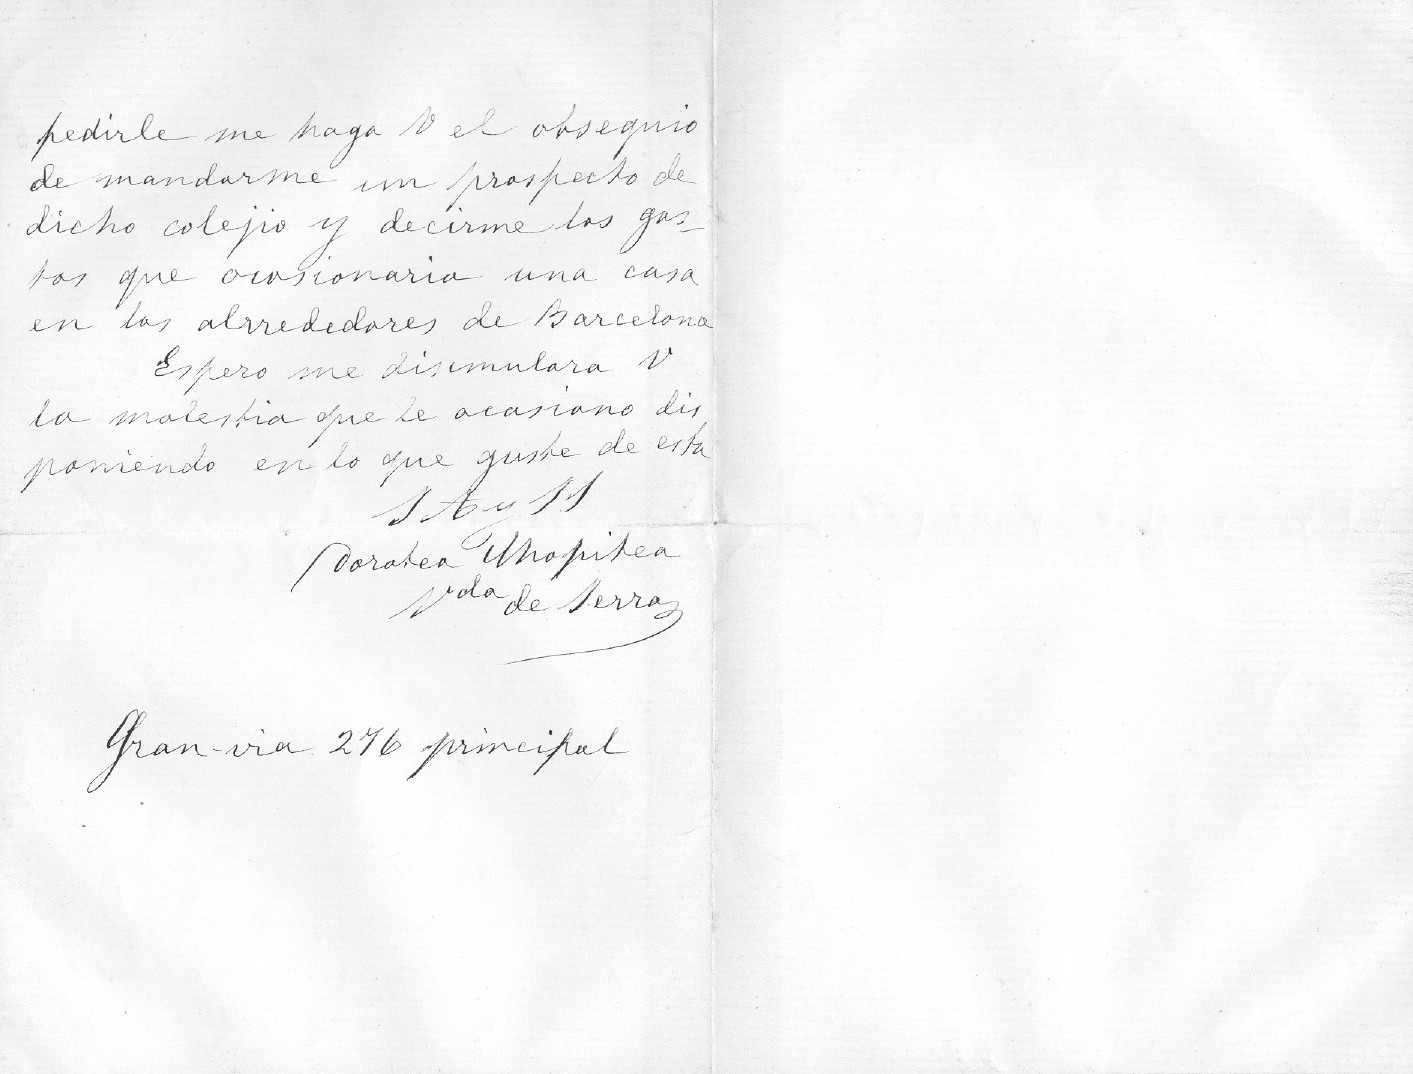 pedirle me haga V el obsequio
de mandarme un prospecto de
dicho colejio y decirme los gas_
tos que ocasionaria una casa
en los alrrededores de Barcelona
Espero me disimulara V
la molestia que le ocasiono dis
poniendo en lo que guste de esta
S A y S S
Dorotea Chopitea
Vda de Serra
Gran-via 276 principal